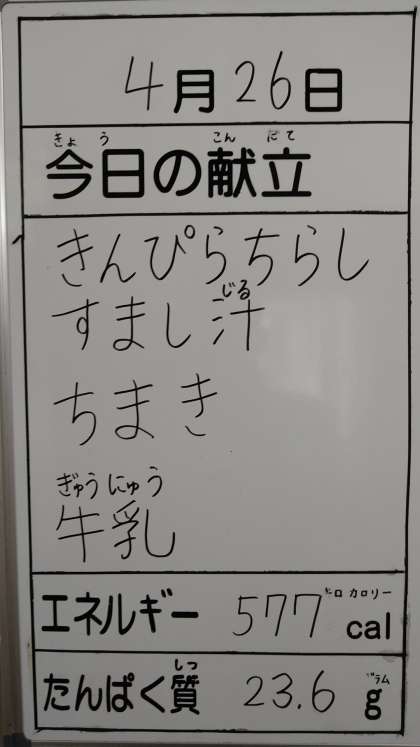 4月26日
きょう こんだて
今日の献立
きんぴらちらし
じる
すまし汁
ちまき
ぎゅうにゅう
牛乳
キロカロリー
エネルギー 577 cal
しつ グラム
たんぱく質 23.6 g